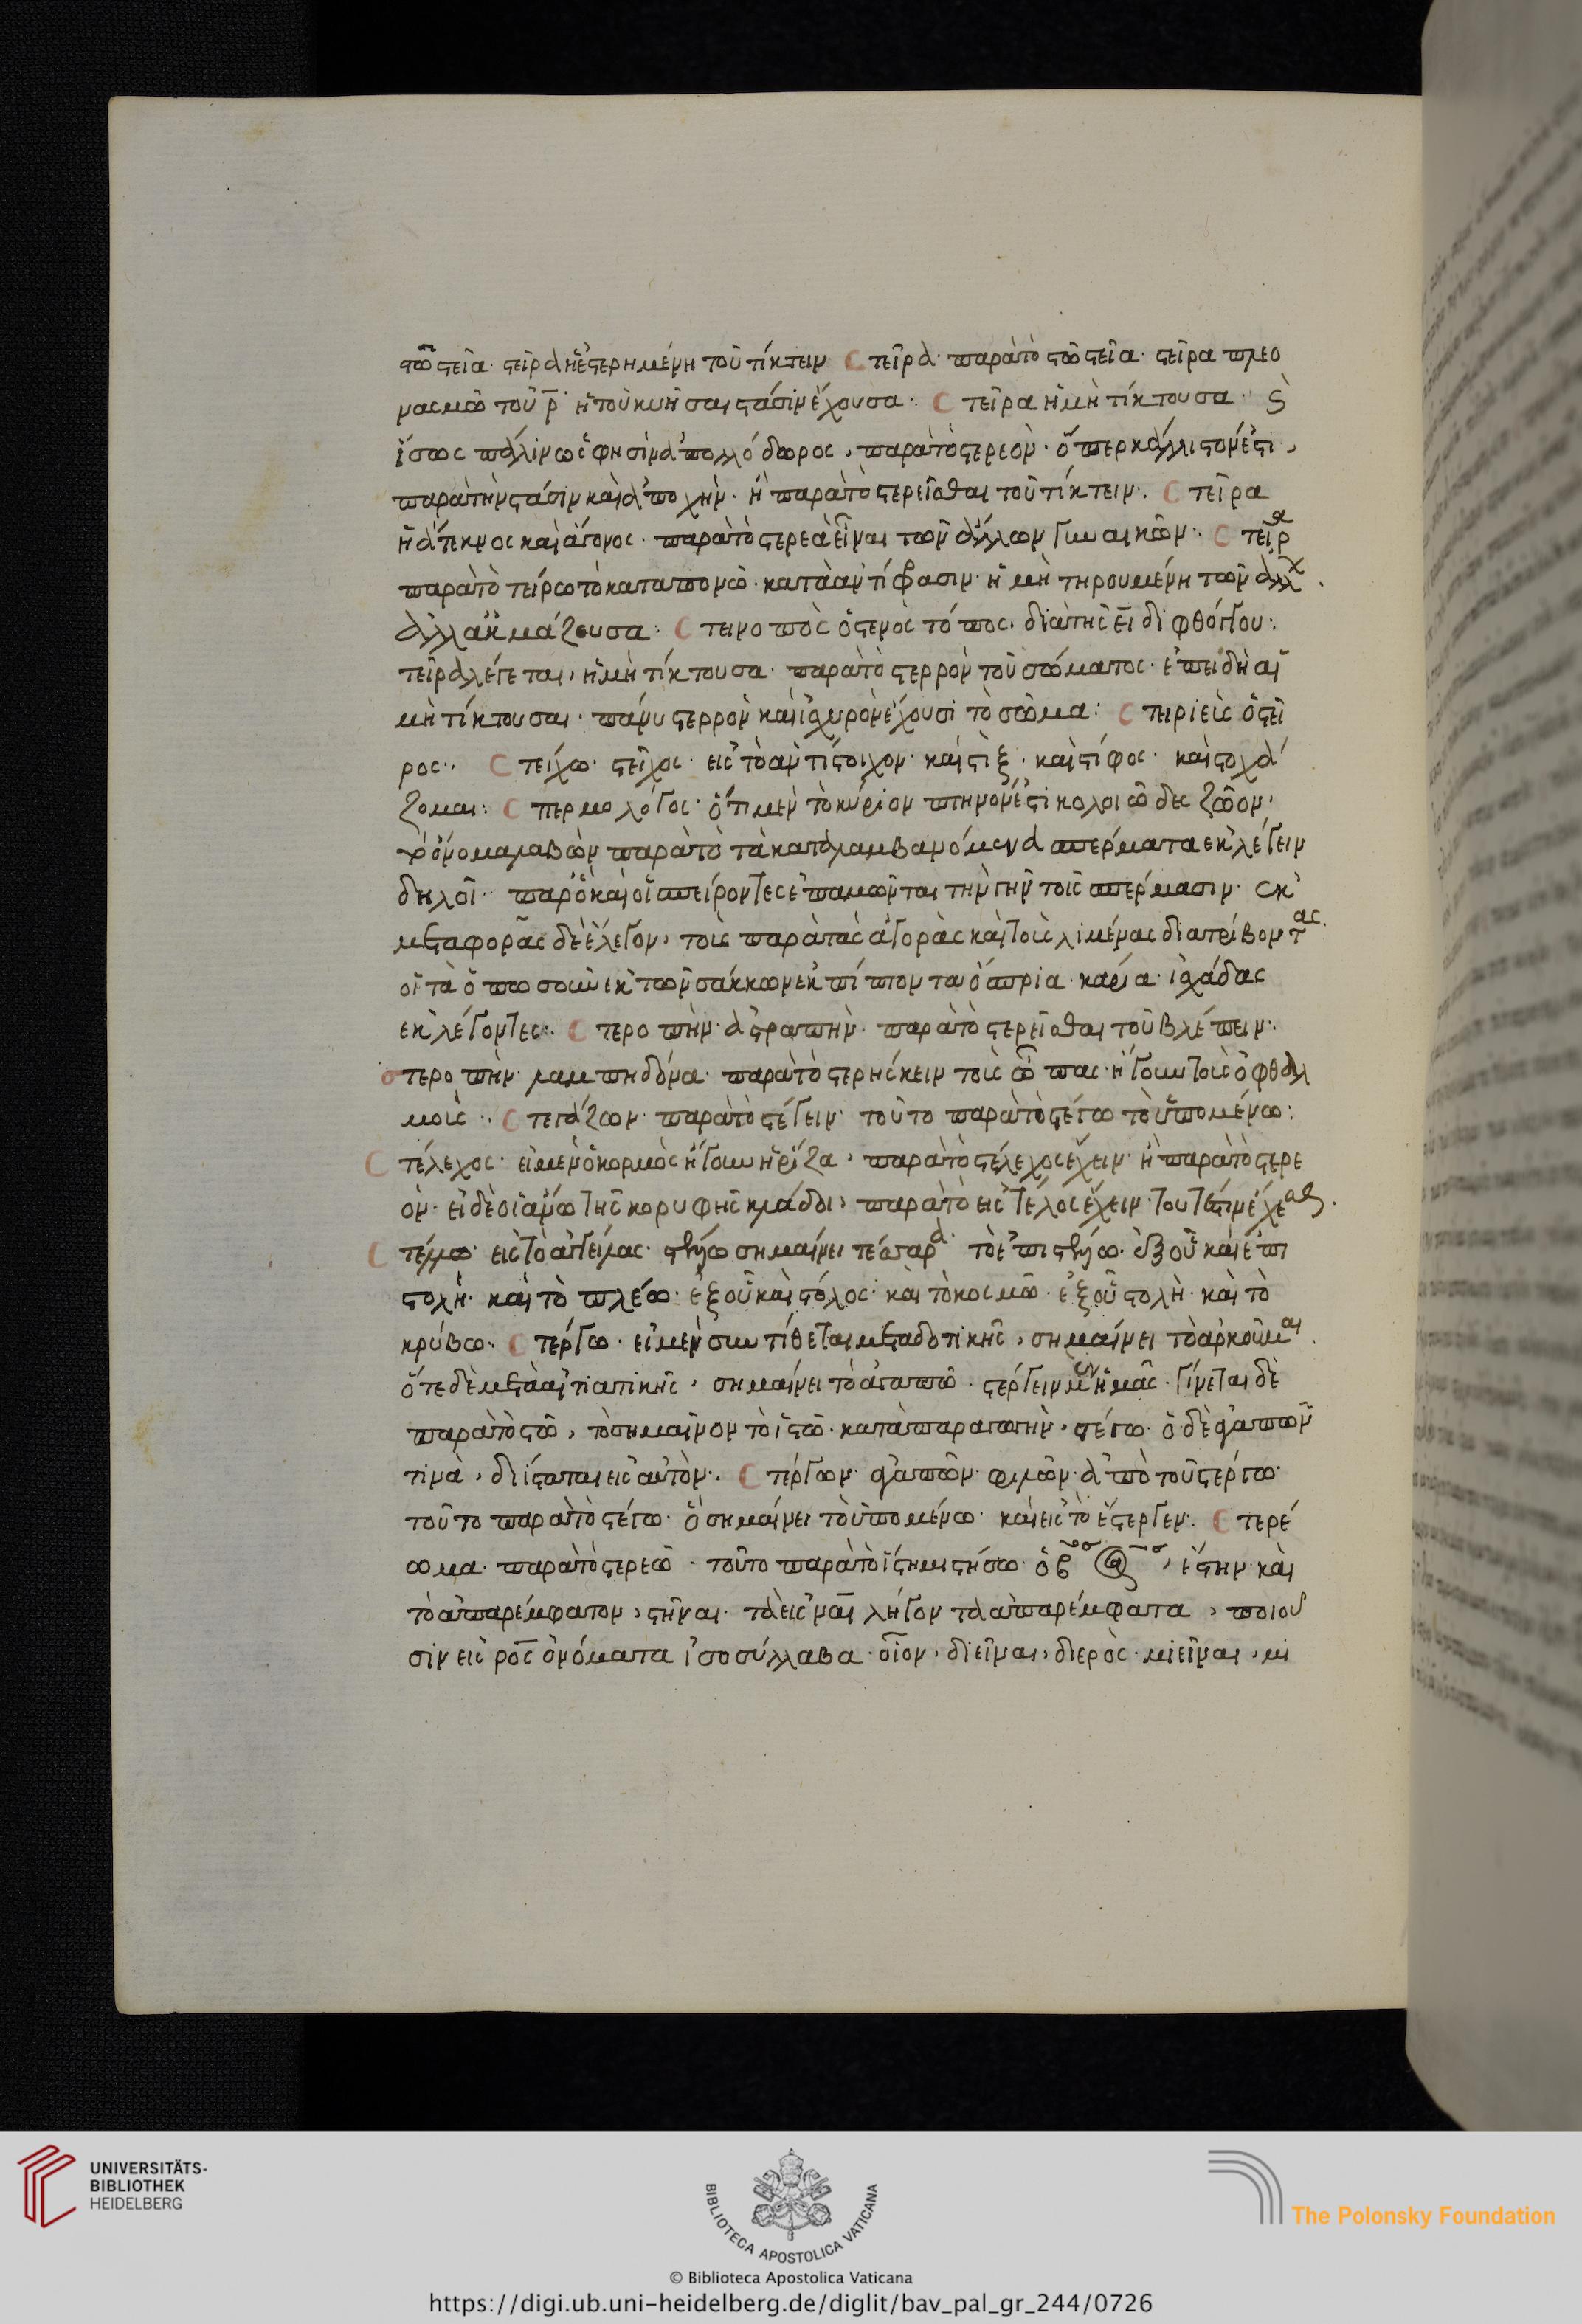 στῶ στεῖα· στεῖρα ἡ ἐστερημένη τοῦ τίκτειν Στεῖρα· παρὰ τὸ στῶ στεῖα· στεῖρα πλεο
νασμῶ τοῦ ρ̄· ἡ τοῦ κυῆσαι στάσιν ἔχουσα· Στεῖρα ἡ μὴ τίκτουσα·
ἴσως πάλιν ὡς φησὶν ἀπολλόδωρος, παρὰ τὸ στερεὸν· ὅπερ κάλλιστον ἐστι,
παρὰ τὴν στάσιν καὶ ἀποχὴν· ἢ παρὰ τὸ στερεῖσθαι τοῦ τίκτειν· Στεῖρα
ἡ ἄτεκνος καὶ ἄγονος· παρὰ τὸ στερεὰ εἶναι τῶν ἄλλων γυναικῶν· Στεῖρα
παρὰ τὸ τείρω τὸ καταπονῶ· κατὰ ἀντίφρασιν· ἡ μὴ τηρουμένη τῶν ἀλλ
ἀλλ' ἀκμάζουσα: Στεινοπὸς ὁ στενὸς τόπος· διὰ τῆς ει διφθόγγου:
στεῖρα λέγεται, ἡ μὴ τίκτουσα· παρὰ τὸ στερρὸν τοῦ σώματος· ἐπειδὴ αἱ
μὴ τίκτουσαι· πάνυ στερρὸν καὶ ἰσχυρὸν ἔχουσι τὸ σῶμα: Στειριεὶς ὁ στεί
ρος· Στείχω· στεῖχος· εἰς τὸ ἀντίστοιχον· καὶ στὶξ· καὶ στίφος· καὶ στοχά
ζομαι: Σπερμολόγος· ὅτι μὲν τὸ κύριον πτηνόν ἐστι κολοιῶδες ζῶον,
τὸ ὄνομα λαβὼν παρὰ τὸ τὰ καταλαμβανόμενα σπέρματα ἐκλέγειν
δηλοῖ· παρὸ καὶ οἱ σπείροντες ἐπαμῶνται τὴν γῆν τοῖς σπέρμασιν· ἐκ
μεταφορᾶς δὲ ἔλεγον, τοὺς παρὰ τὰς ἀγορὰς καὶ τοὺς λιμένας διατρίβοντας
οἳ τὰ ὁπωσοῦν ἐκ τῶν σάκκων ἐκπίπτοντα ὄσπρια· κάρια· ἰσχάδας
ἐκλέγοντες: Στεροπὴν· ἀστραπὴν· παρὰ τὸ στερεῖσθαι τοῦ βλέπειν·
Στεροπὴν· λαμπηδόνα· παρὰ τὸ στερήσκειν τοὺς ὦπας· ἤγουν τοὺς ὀφθαλ
μούς: Στεγάζων· παρὰ τὸ στέγειν· τοῦτο παρὰ τὸ στέγω τὸ ὑπομένω:
Στέλεχος· εἰ μὲν ὁ κορμὸς ἤγουν ἡ ῥίζα, παρὰ τὸ στέλεχος ἔχειν· ἢ παρὰ τὸ στερε
όν· εἰ δὲ οἱ ἄνω τῆς κορυφῆς κλάδοι, παρὰ τὸ εἰς τέλος ἔχειν· τουτέστιν
Στέλλω· εἰς τὸ στείλας· στέλλω σημαίνει τέσσαρα· τὸ ἐπιστέλλω· ἐξ οὗ καὶ ἐπι
στολὴ· καὶ τὸ πλέω· ἐξ οὗ καὶ στόλος· καὶ τὸ κοσμῶ· ἐξ οὗ στολὴ· καὶ τὸ
κρύβω: Στέργω· εἰ μὲν συντίθεται μετὰ δοτικῆς, σημαίνει τὸ ἀρκοῦμαι.
ὅτε δὲ μετὰ αἰτιατικῆς, σημαίνει τὸ ἀγαπῶ· στέργειν μὲν ἡμᾶς· γίνεται δὲ
παρὰ τὸ στῶ, τὸ σημαῖνον τὸ ἱστῶ· κατὰ παραγωγὴν, στέγω· ὁ δὲ ἀγαπῶν
τινὰ, διίσταται εἰς αὐτὸν: Στέργων· ἀγαπῶν· φιλῶν· ἀπὸ τοῦ στέργω·
τοῦτο παρὰ τὸ στέγω· ὃ σημαίνει τὸ ὑπομένω· καὶ εἰς τὸ ἔστεργεν· Στερέ
ωμα· παρὰ τὸ στερεῶ· τοῦτο παρὰ τὸ ἵστημι στήσω· ὁ β, ἔστην· καὶ
τὸ ἀπαρέμφατον, στῆναι· τὰ εἰς ναι λήγοντα ἀπαρέμφατα, ποιοῦ
σιν εἰς ρος ὀνόματα ἰσοσύλλαβα· οἷον, διεῖναι, διερὸς· μιεῖναι, μι
UNIVERSITÄTS-
BIBLIOTHEK
HEIDELBERG
BIBLIOTECA APOSTOLICA VATICANA
The Polonsky Foundation
© Biblioteca Apostolica Vaticana
https://digi.ub.uni-heidelberg.de/diglit/bav_pal_gr_244/0726